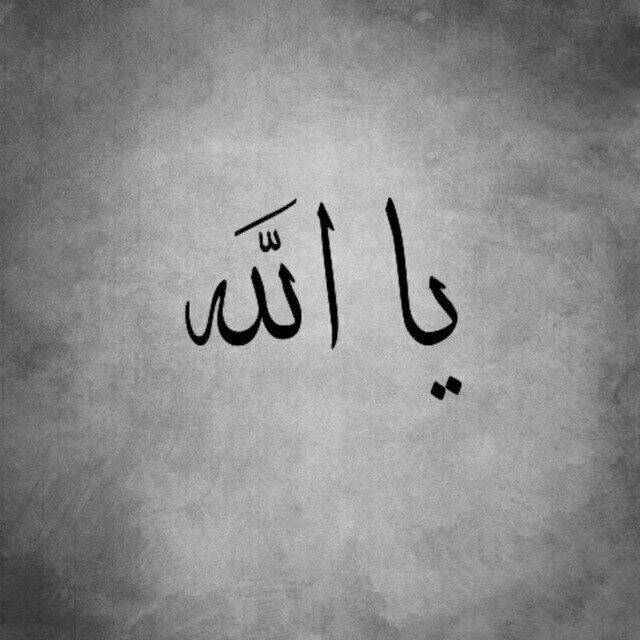 يا اللَّه